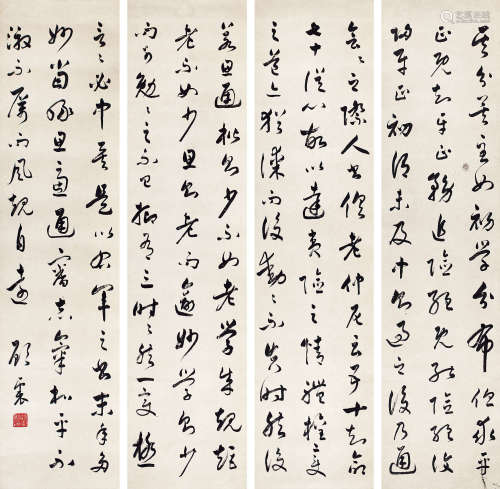 其分矣至如初學分布但求平
正既知平正務追險絕既能險絕復
歸平正初謂未及中則過之後乃通
會〻之際人書俱老仲尼云五十知命
七十從心故以達夷險之情體權變
之道亦猶謀而後動〻不失宜時然後
若思通楷則少不如老學成規矩
老不如少思則老而逾妙學乃少
而可勉〻之不已抑有三時〻然一變極
言〻必中矣是以右軍之書末年多
妙當緣思慮通審志氣和平不
激不厲而風規自遠